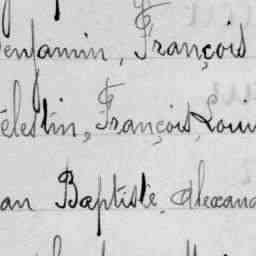 enjamin, François
élestin, François, Loui
an Baptiste, Alexand